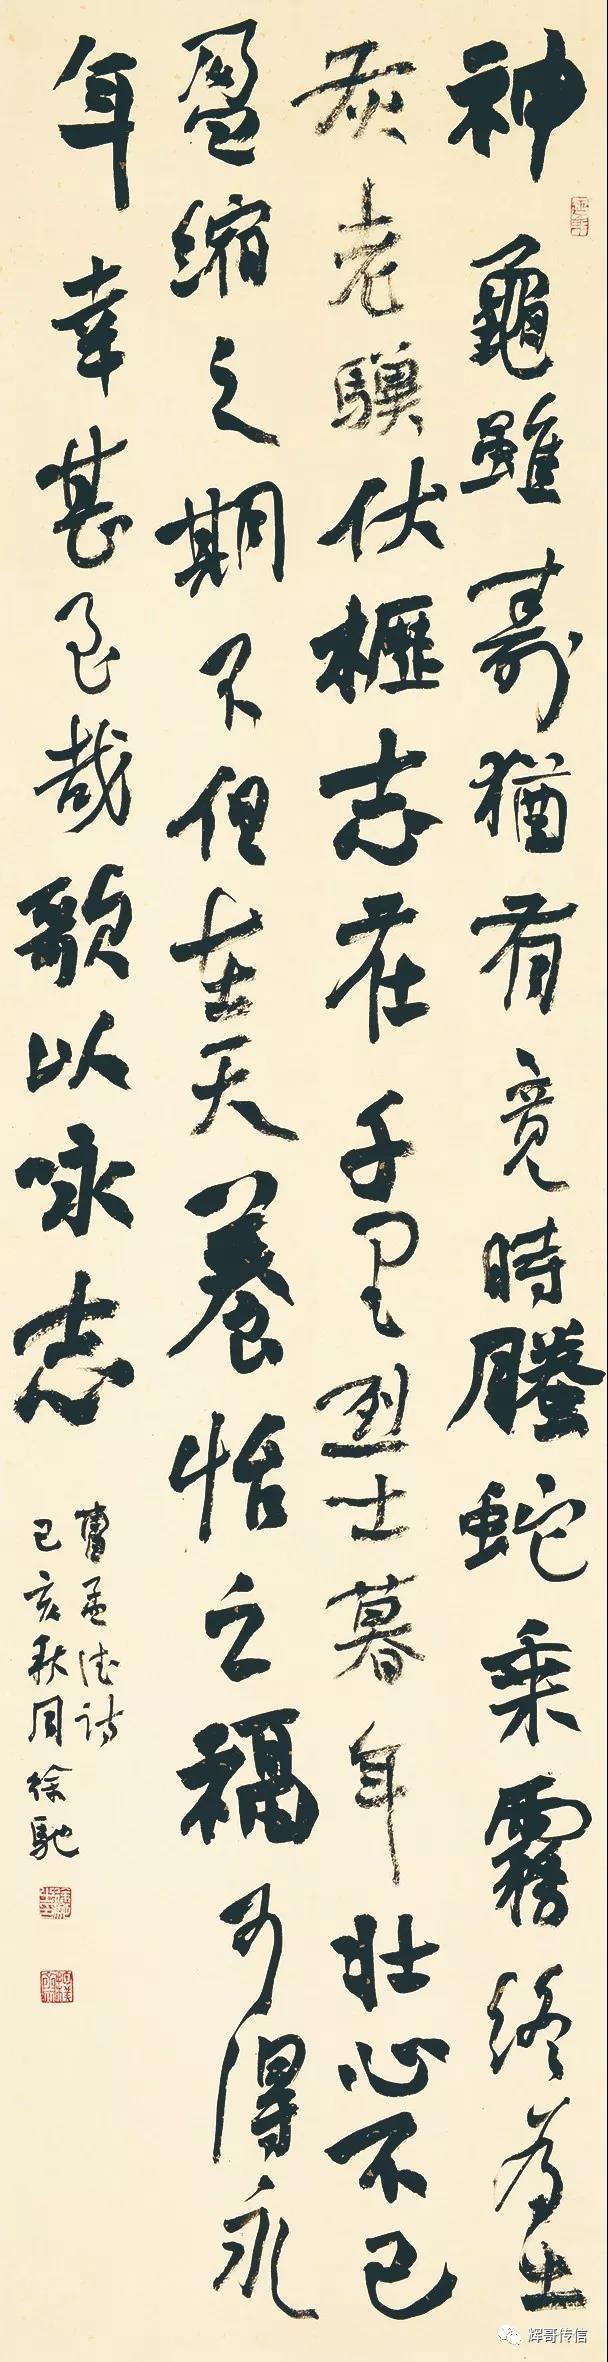 神龜雖壽猶有竟時螣蛇乘霧終為土
灰老驥伏櫪志在千里烈士暮年壯心不已
盈縮之期不但在天養怡之福可得永
年幸甚至哉歌以咏志
曹孟德詩
己亥秋月徐馳
辉哥传信